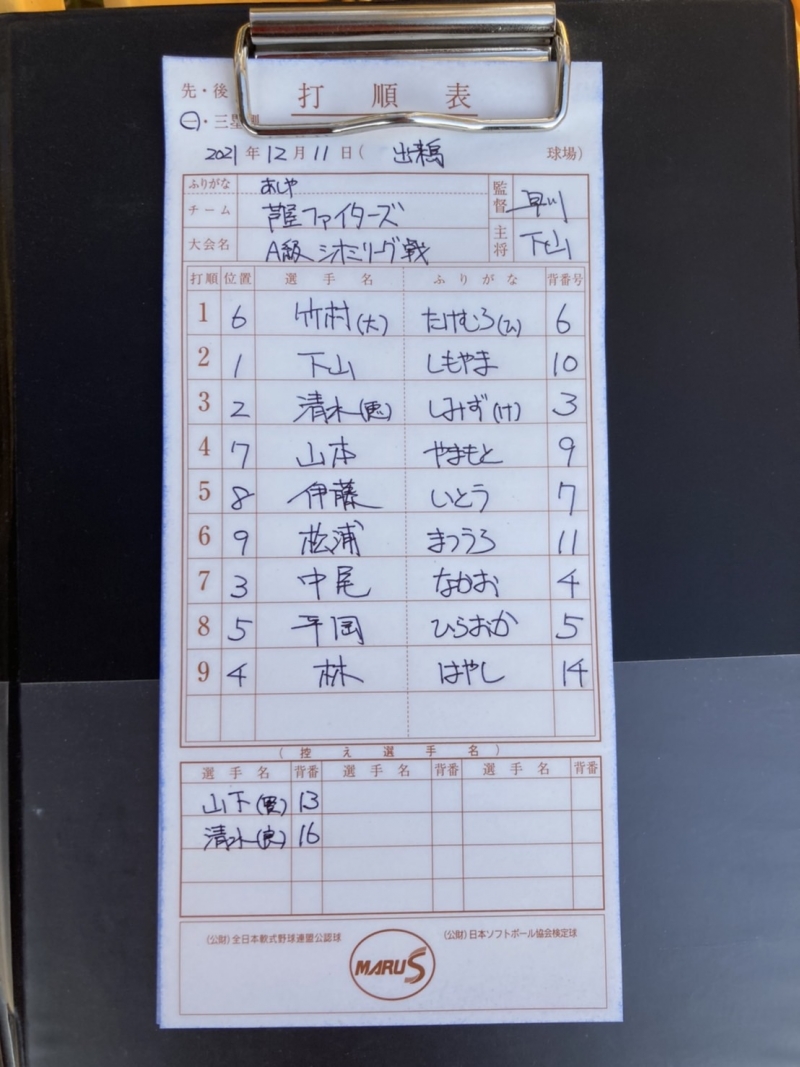 先・後 打順表
㊀・三塁側
2021年12月11日( 球場)
ふりがな あしや
チーム 芦屋ファイターズ 監督 早川
大会名 A級シオミリーグ戦 主将 下山
打順 位置 選手名 ふりがな 背番号
1 6 竹村(大) たけむら(ひ) 6
2 1 下山 しもやま 10
3 2 清水(恵) しみず(け) 3
4 7 山本 やまもと 9
5 8 伊藤 いとう 7
6 9 松浦 まつうら 11
7 3 中尾 なかお 4
8 5 平岡 ひらおか 5
9 4 林 はやし 14
(控え選手名)
選手名 背番 選手名 背番 選手名 背番
山下(寛) 13
清水(良) 16
(公財)全日本軟式野球連盟公認球 (公財)日本ソフトボール協会検定球
MARU S